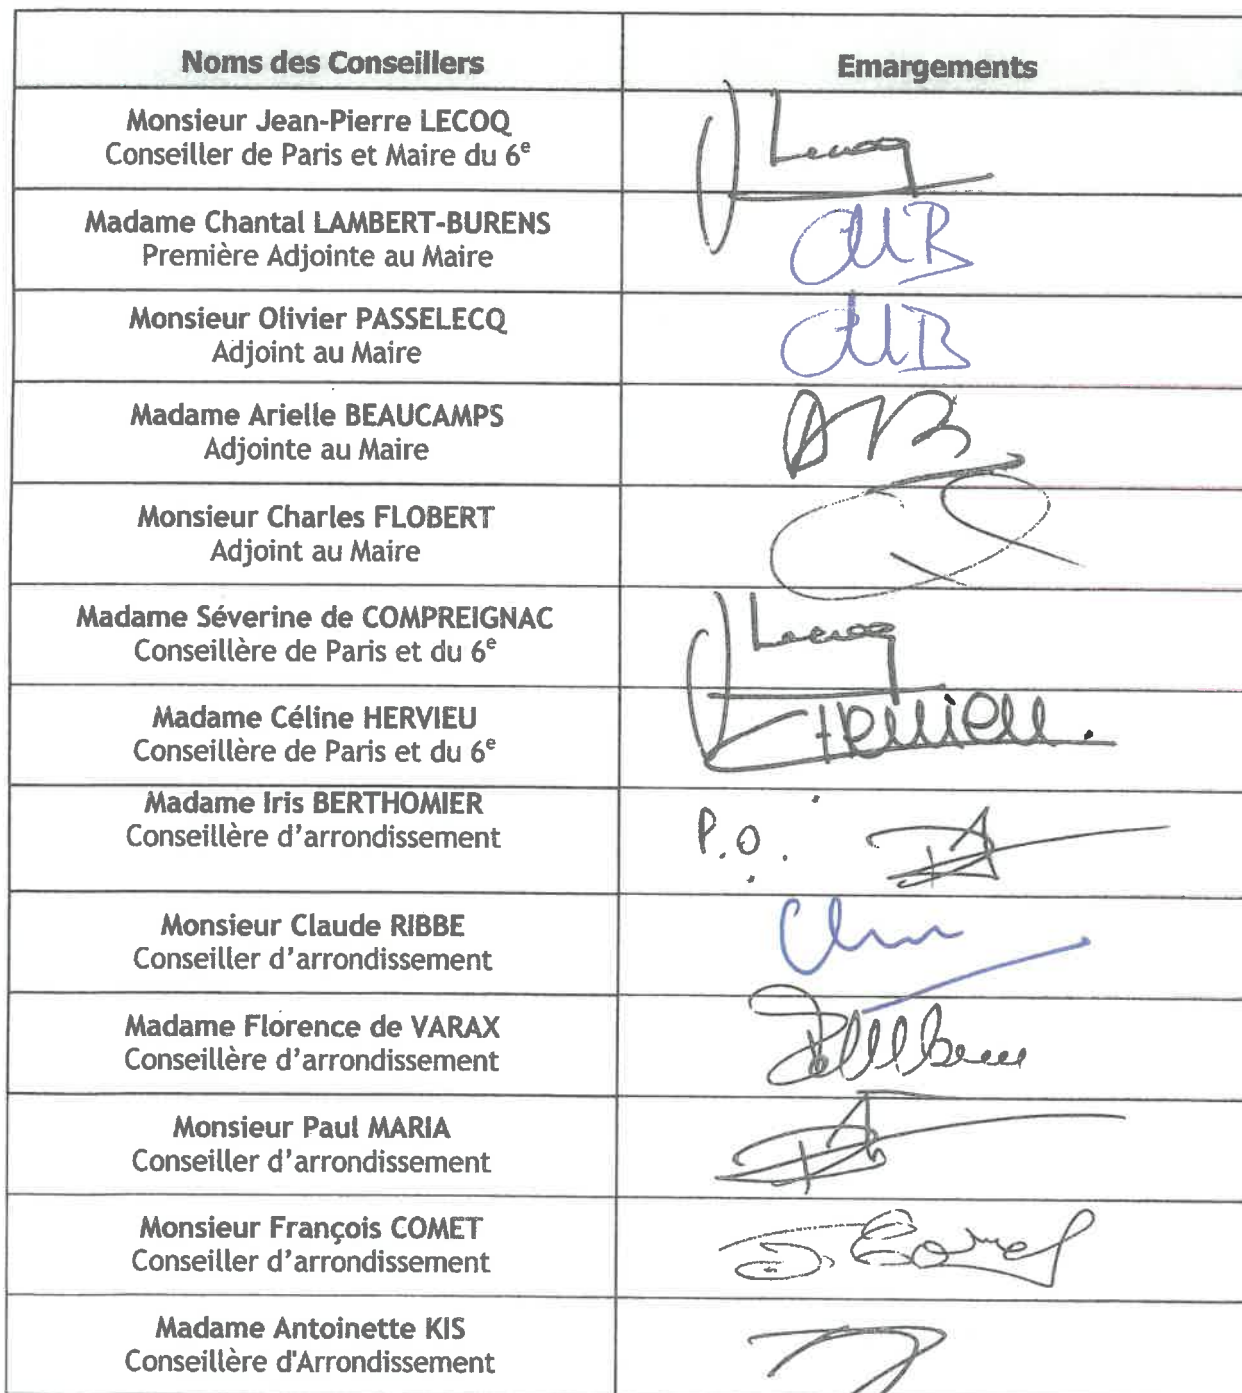 Noms des Conseillers
Emargements
Monsieur Jean-Pierre LECOQ
Conseiller de Paris et Maire du 6e
Lecoq
Madame Chantal LAMBERT-BURENS
Première Adjointe au Maire
Monsieur Olivier PASSELECQ
Adjoint au Maire
Madame Arielle BEAUCAMPS
Adjointe au Maire
AB
Monsieur Charles FLOBERT
Adjoint au Maire
Madame Séverine de COMPREIGNAC
Conseillère de Paris et du 6e
Lecoq
Madame Céline HERVIEU
Conseillère de Paris et du 6e
Hervieu.
Madame Iris BERTHOMIER
Conseillère d'arrondissement
P.O.
Monsieur Claude RIBBE
Conseiller d'arrondissement
Madame Florence de VARAX
Conseillère d'arrondissement
Monsieur Paul MARIA
Conseiller d'arrondissement
Monsieur François COMET
Conseiller d'arrondissement
Comet
Madame Antoinette KIS
Conseillère d'Arrondissement